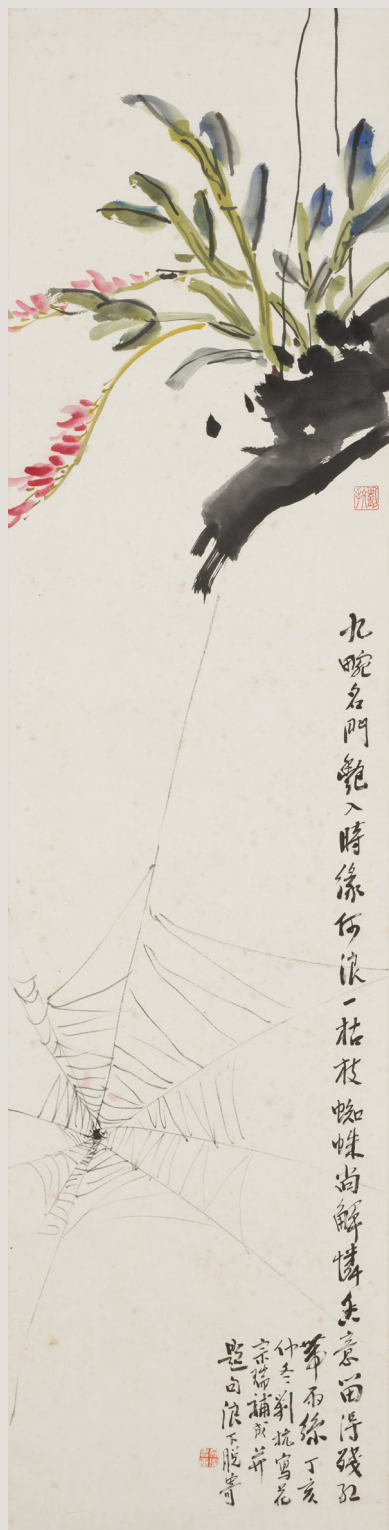 九畹名門艷入時緣何浪一枯枝蜘蛛尚解憐香意留得殘紅
帶雨絲丁亥
仲冬劉抗寫花
宗瑞補成并
題句浪下脫寄
劉抗